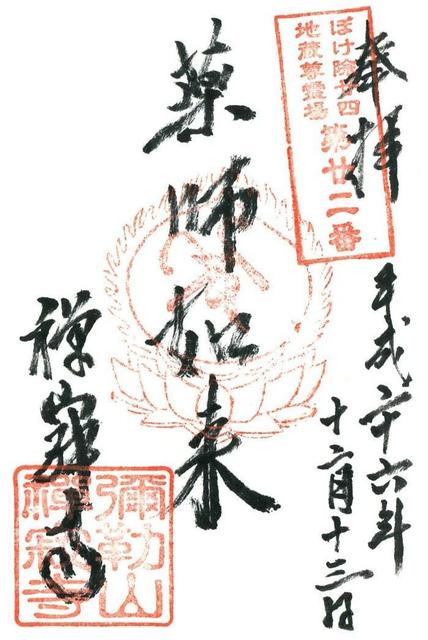 奉拝
ぼけ除廿四
地蔵尊霊場
第廿二番
平成二十六年
十二月十三日
薬師如来
禅寂寺
彌勒山
禅寂寺